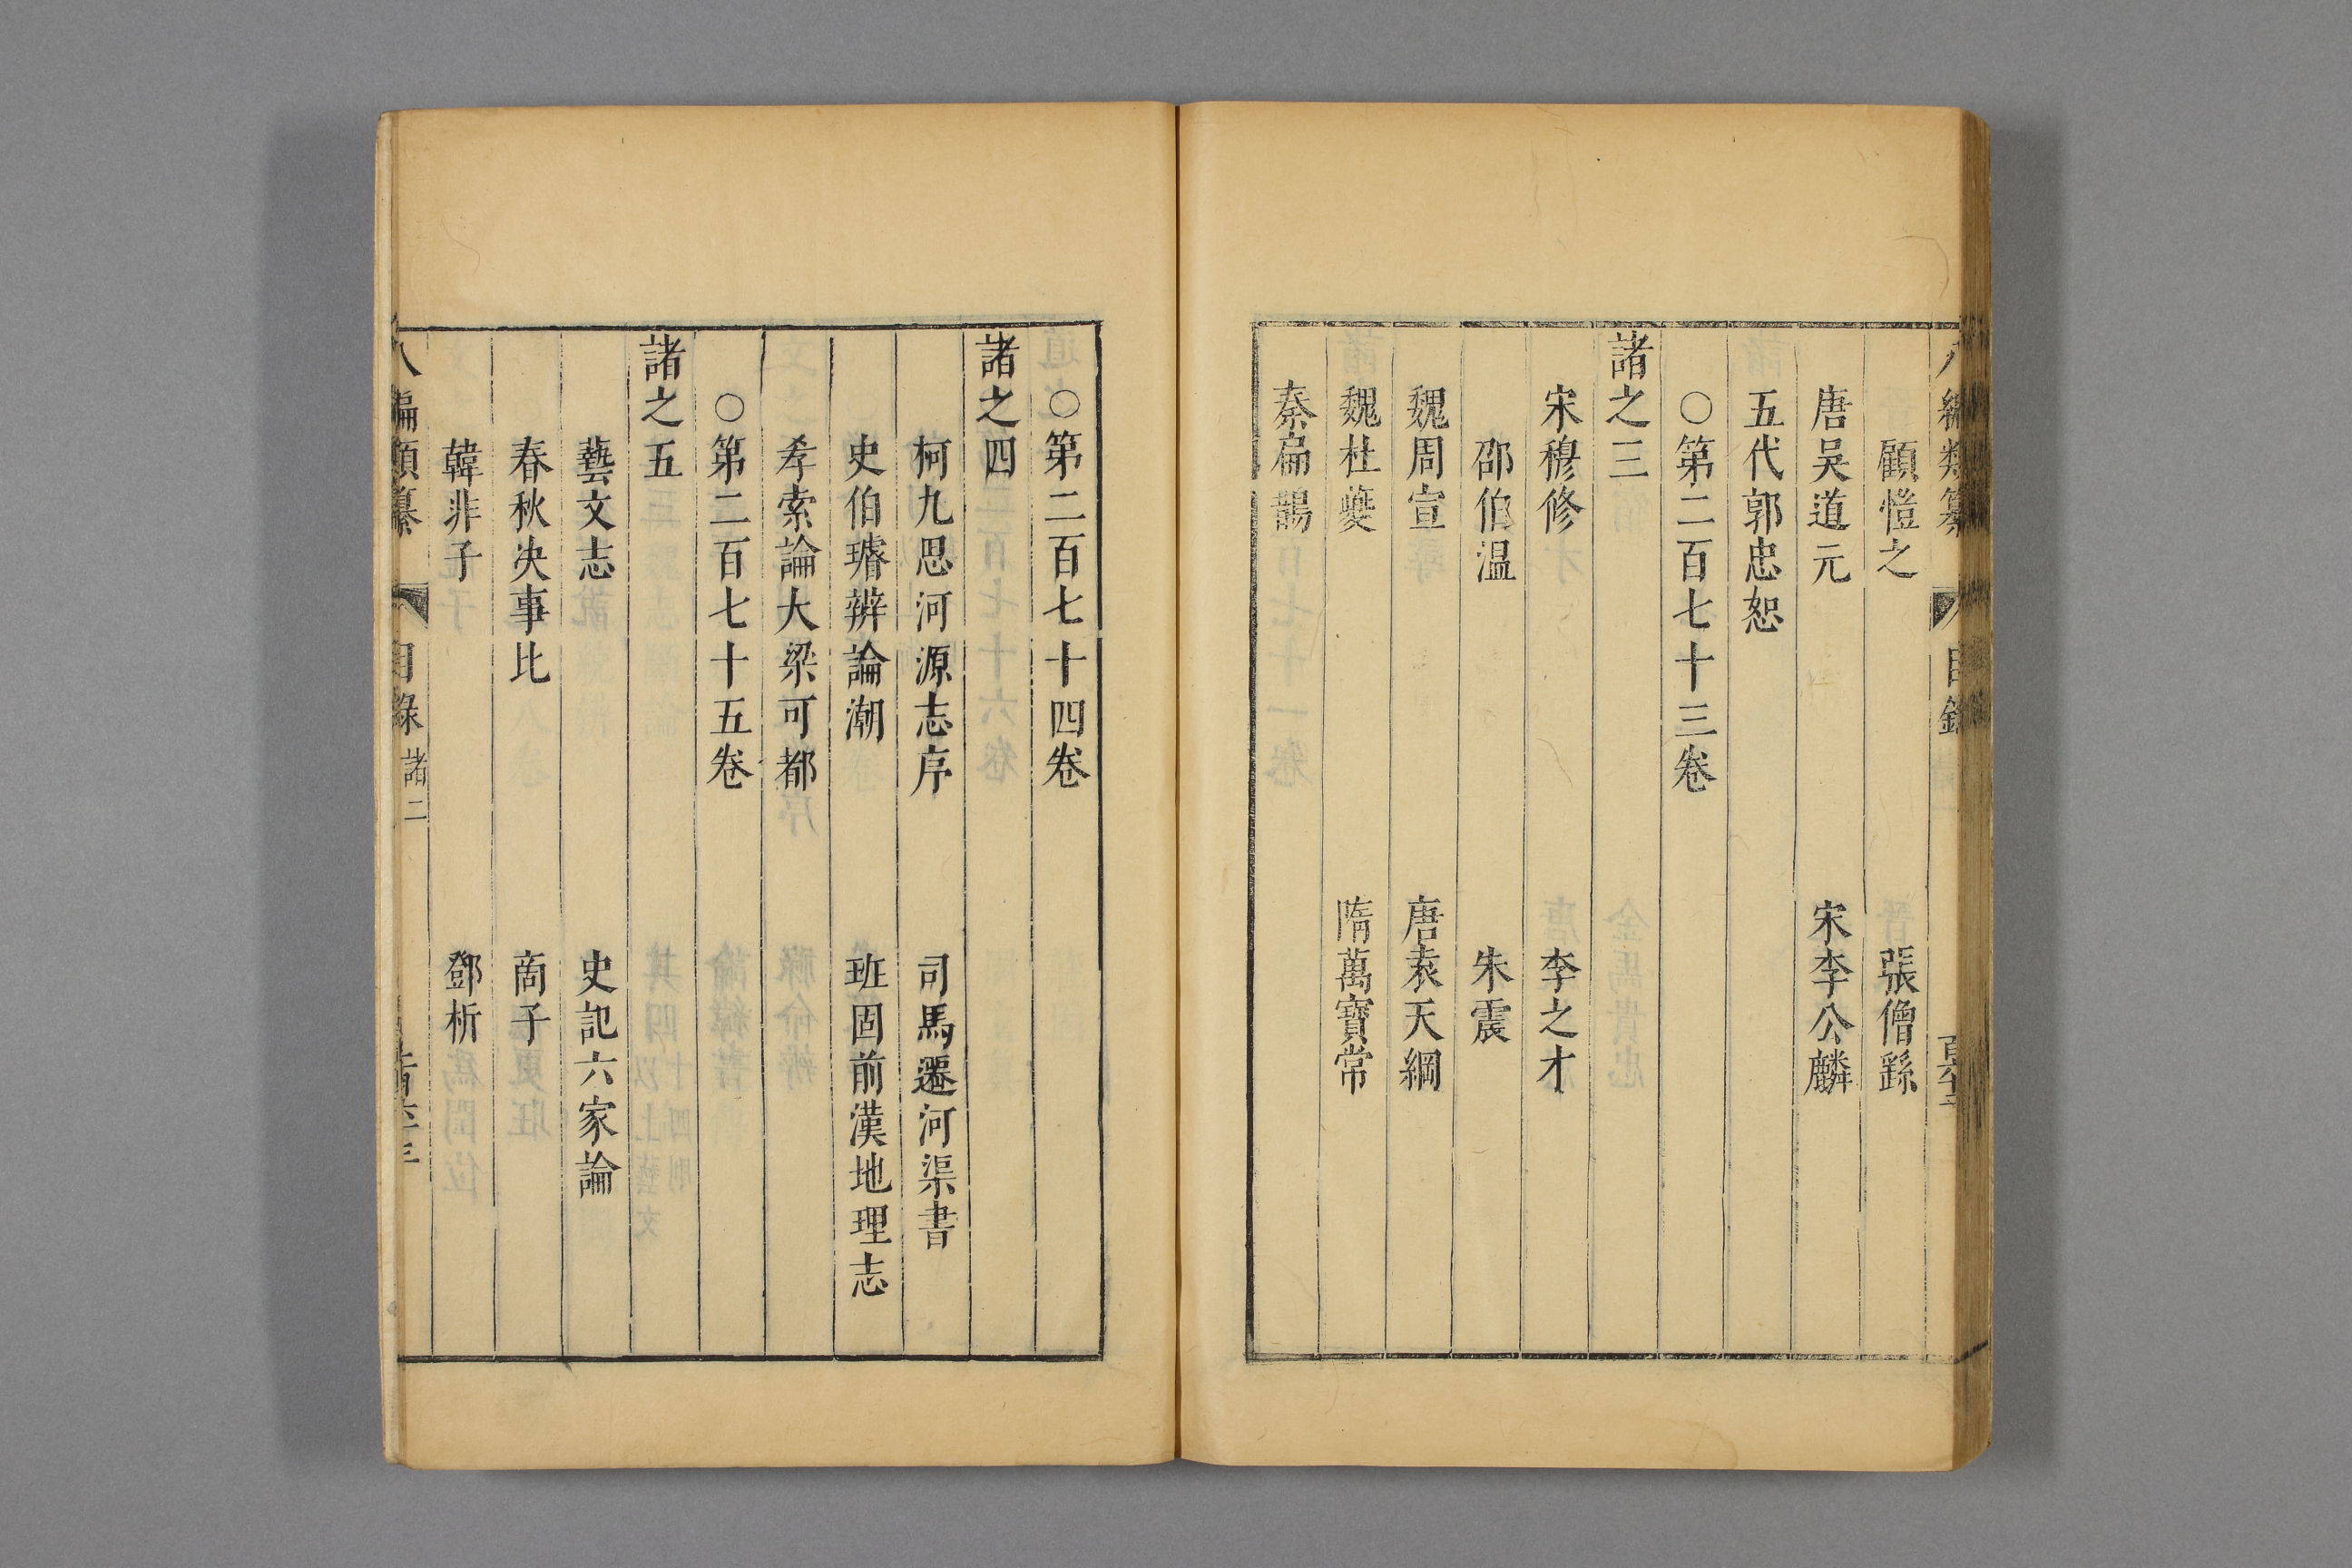 顧愷之　張僧繇
唐吴道元　宋李公麟
五代郭忠恕
○第二百七十三卷
諸之三
宋穆修　李之才
邵伯温　朱震
魏周宣　唐袁天綱
魏杜夔　隋萬寶常
秦扁鵲
○第二百七十四卷
諸之四
柯九思河源志序　司馬遷河渠書
史伯璿辨論潮　班固前漢地理志
孝索論大梁可都
○第二百七十五卷
諸之五
藝文志　史記六家論
春秋决事比　商子
韓非子　鄧析
八編類纂　目錄　諸二